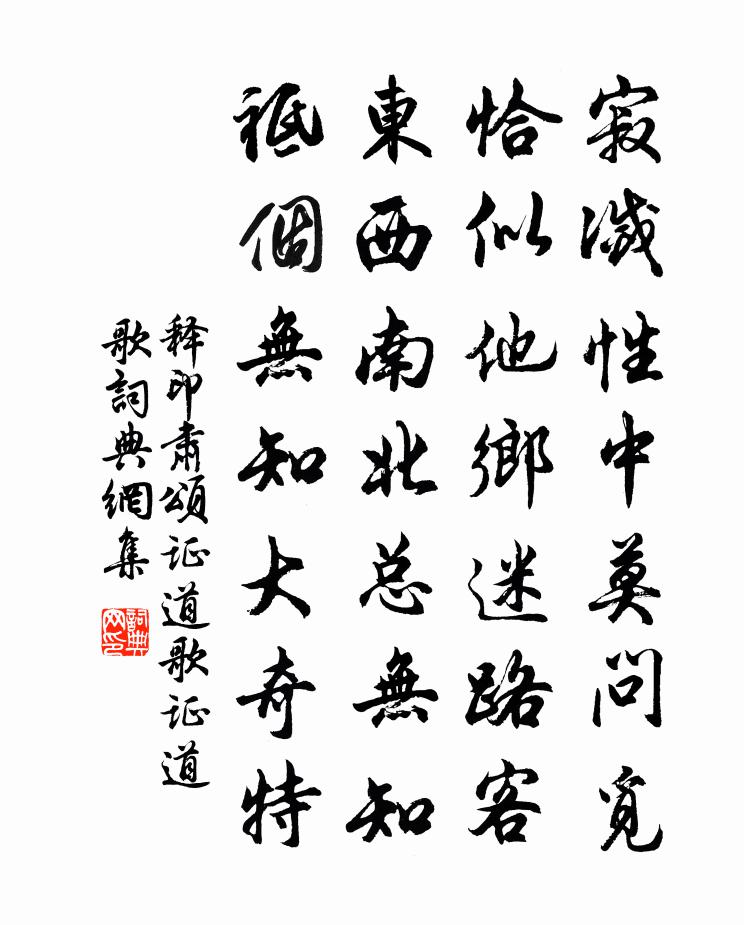 寂滅性中莫問覓
恰似他鄉迷路客
東西南北总無知
祗個無知大奇特
释印肅頌证道歌证道
歌詞典網集
詞典
网印